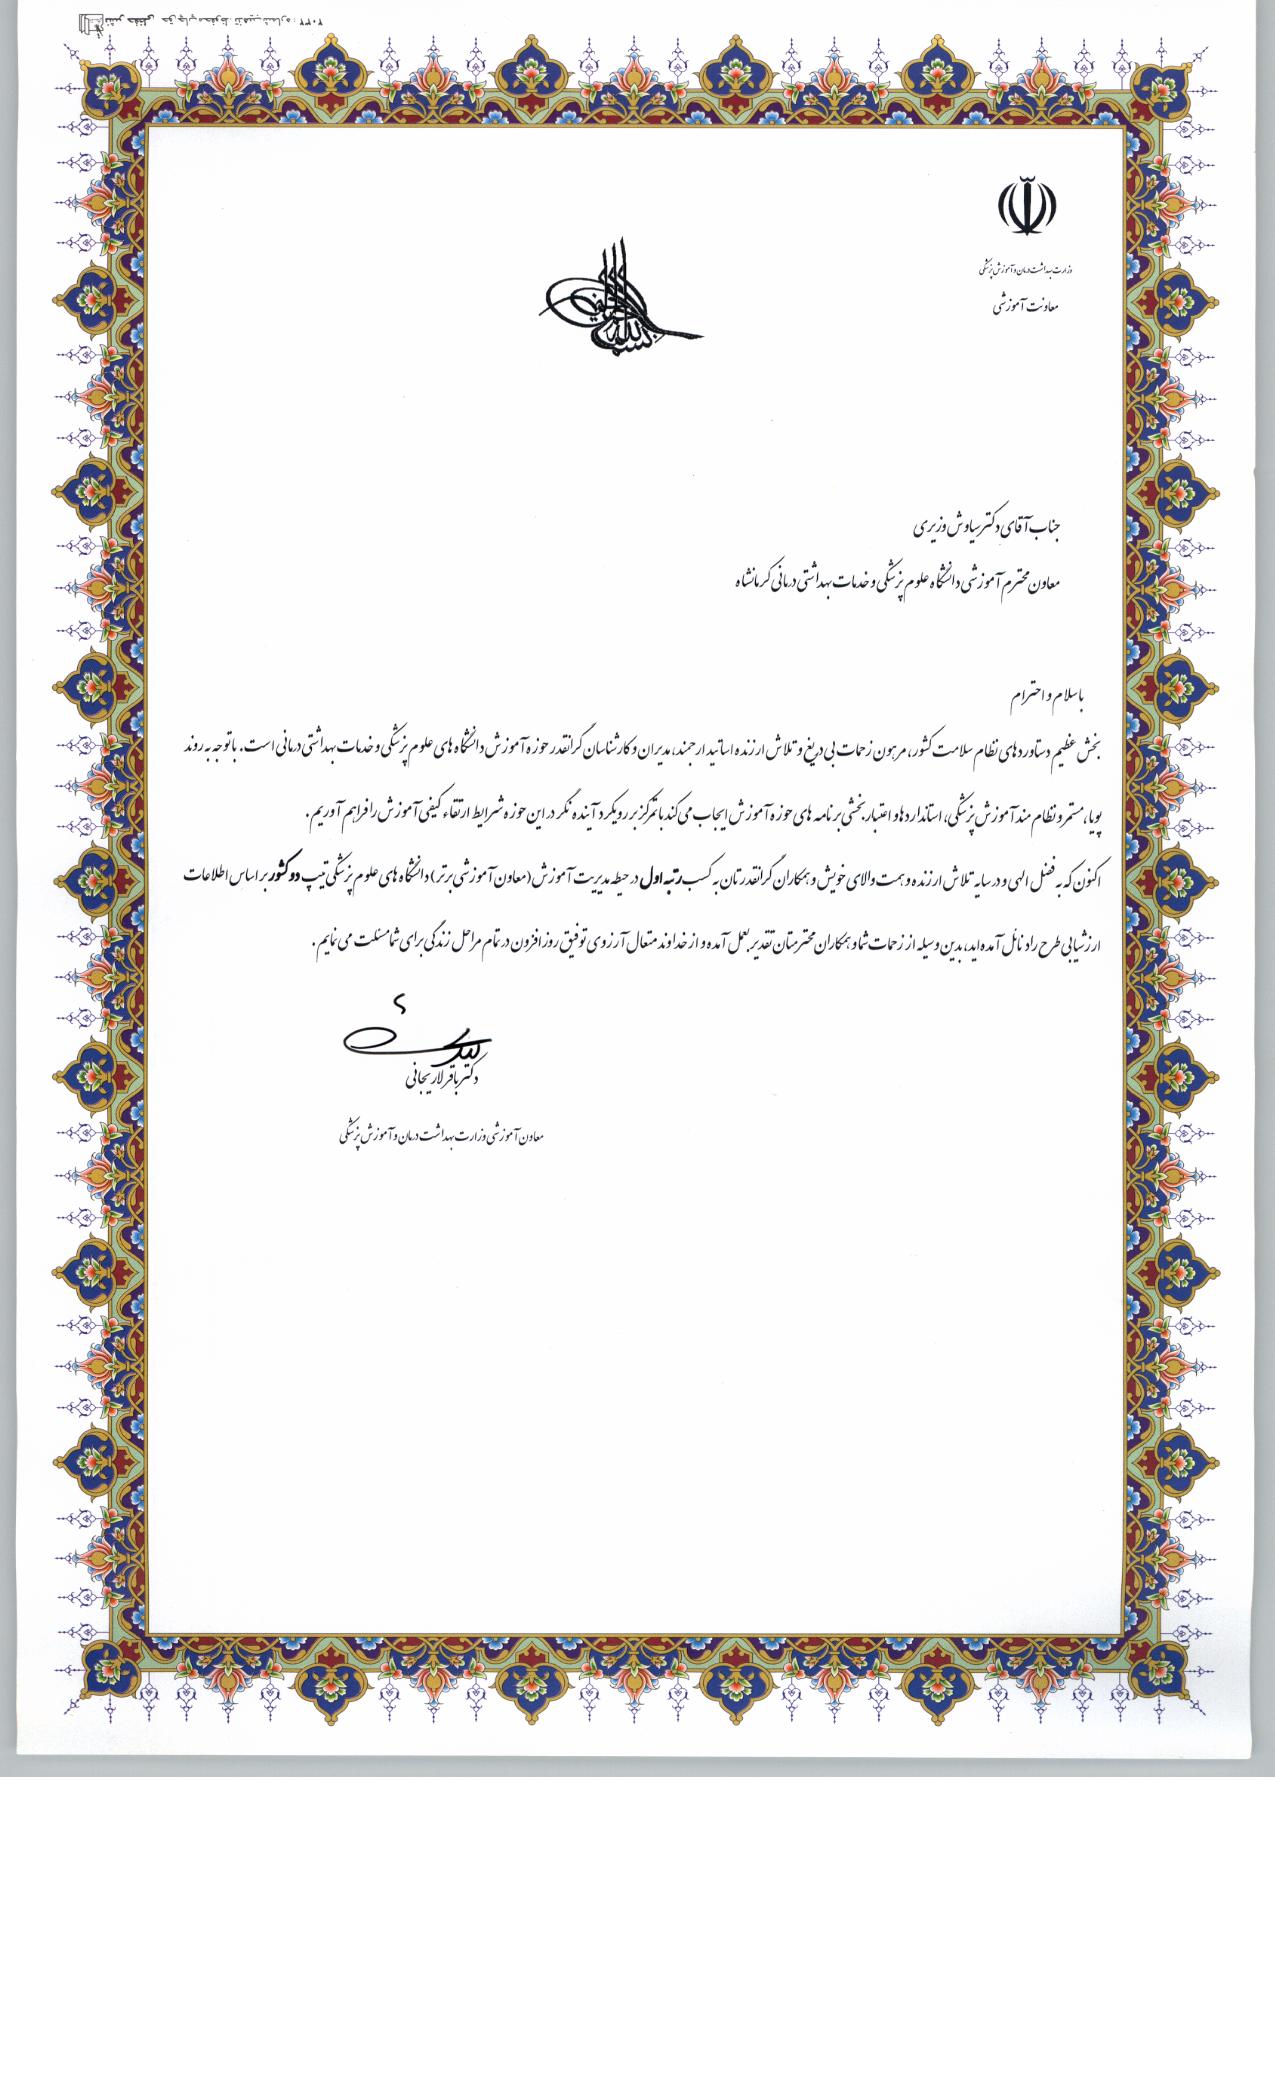 وزارت بهداشت درمان و آموزش پزشکی
معاونت آموزشی
جناب آقای دکتر سیاوش وزیری
معاون محترم آموزشی دانشگاه علوم پزشکی و خدمات بهداشتی درمانی کرمانشاه
با سلام و احترام
بخش عظیم دستاوردهای نظام سلامت کشور، مرهون زحمات بی دریغ و تلاش ارزنده اساتید ارجمند، مدیران و کارشناسان گرانقدر حوزه آموزش دانشگاه های علوم پزشکی و خدمات بهداشتی درمانی است. با توجه به روند
پویا، مستمر و نظام مند آموزش پزشکی، استانداردها و اعتبار بخشی برنامه های حوزه آموزش ایجاب می کند با تمرکز بر رویکرد آینده نگر در این حوزه شرایط ارتقاء کیفی آموزش را فراهم آوریم.
اکنون که به فضل الهی و در سایه تلاش ارزنده و همت والای خویش و همکاران گرانقدرتان به کسب رتبه اول در حیطه مدیریت آموزش (معاون آموزشی برتر) دانشگاه های علوم پزشکی تیپ دو کشور بر اساس اطلاعات
ارزشیابی طرح راد نائل آمده اید، بدین وسیله از زحمات شما و همکاران محترمتان تقدیر بعمل آمده و از خداوند متعال آرزوی توفیق روزافزون در تمام مراحل زندگی برای شما مسئلت می نمایم.
دکتر باقر لاریجانی
معاون آموزشی وزارت بهداشت درمان و آموزش پزشکی